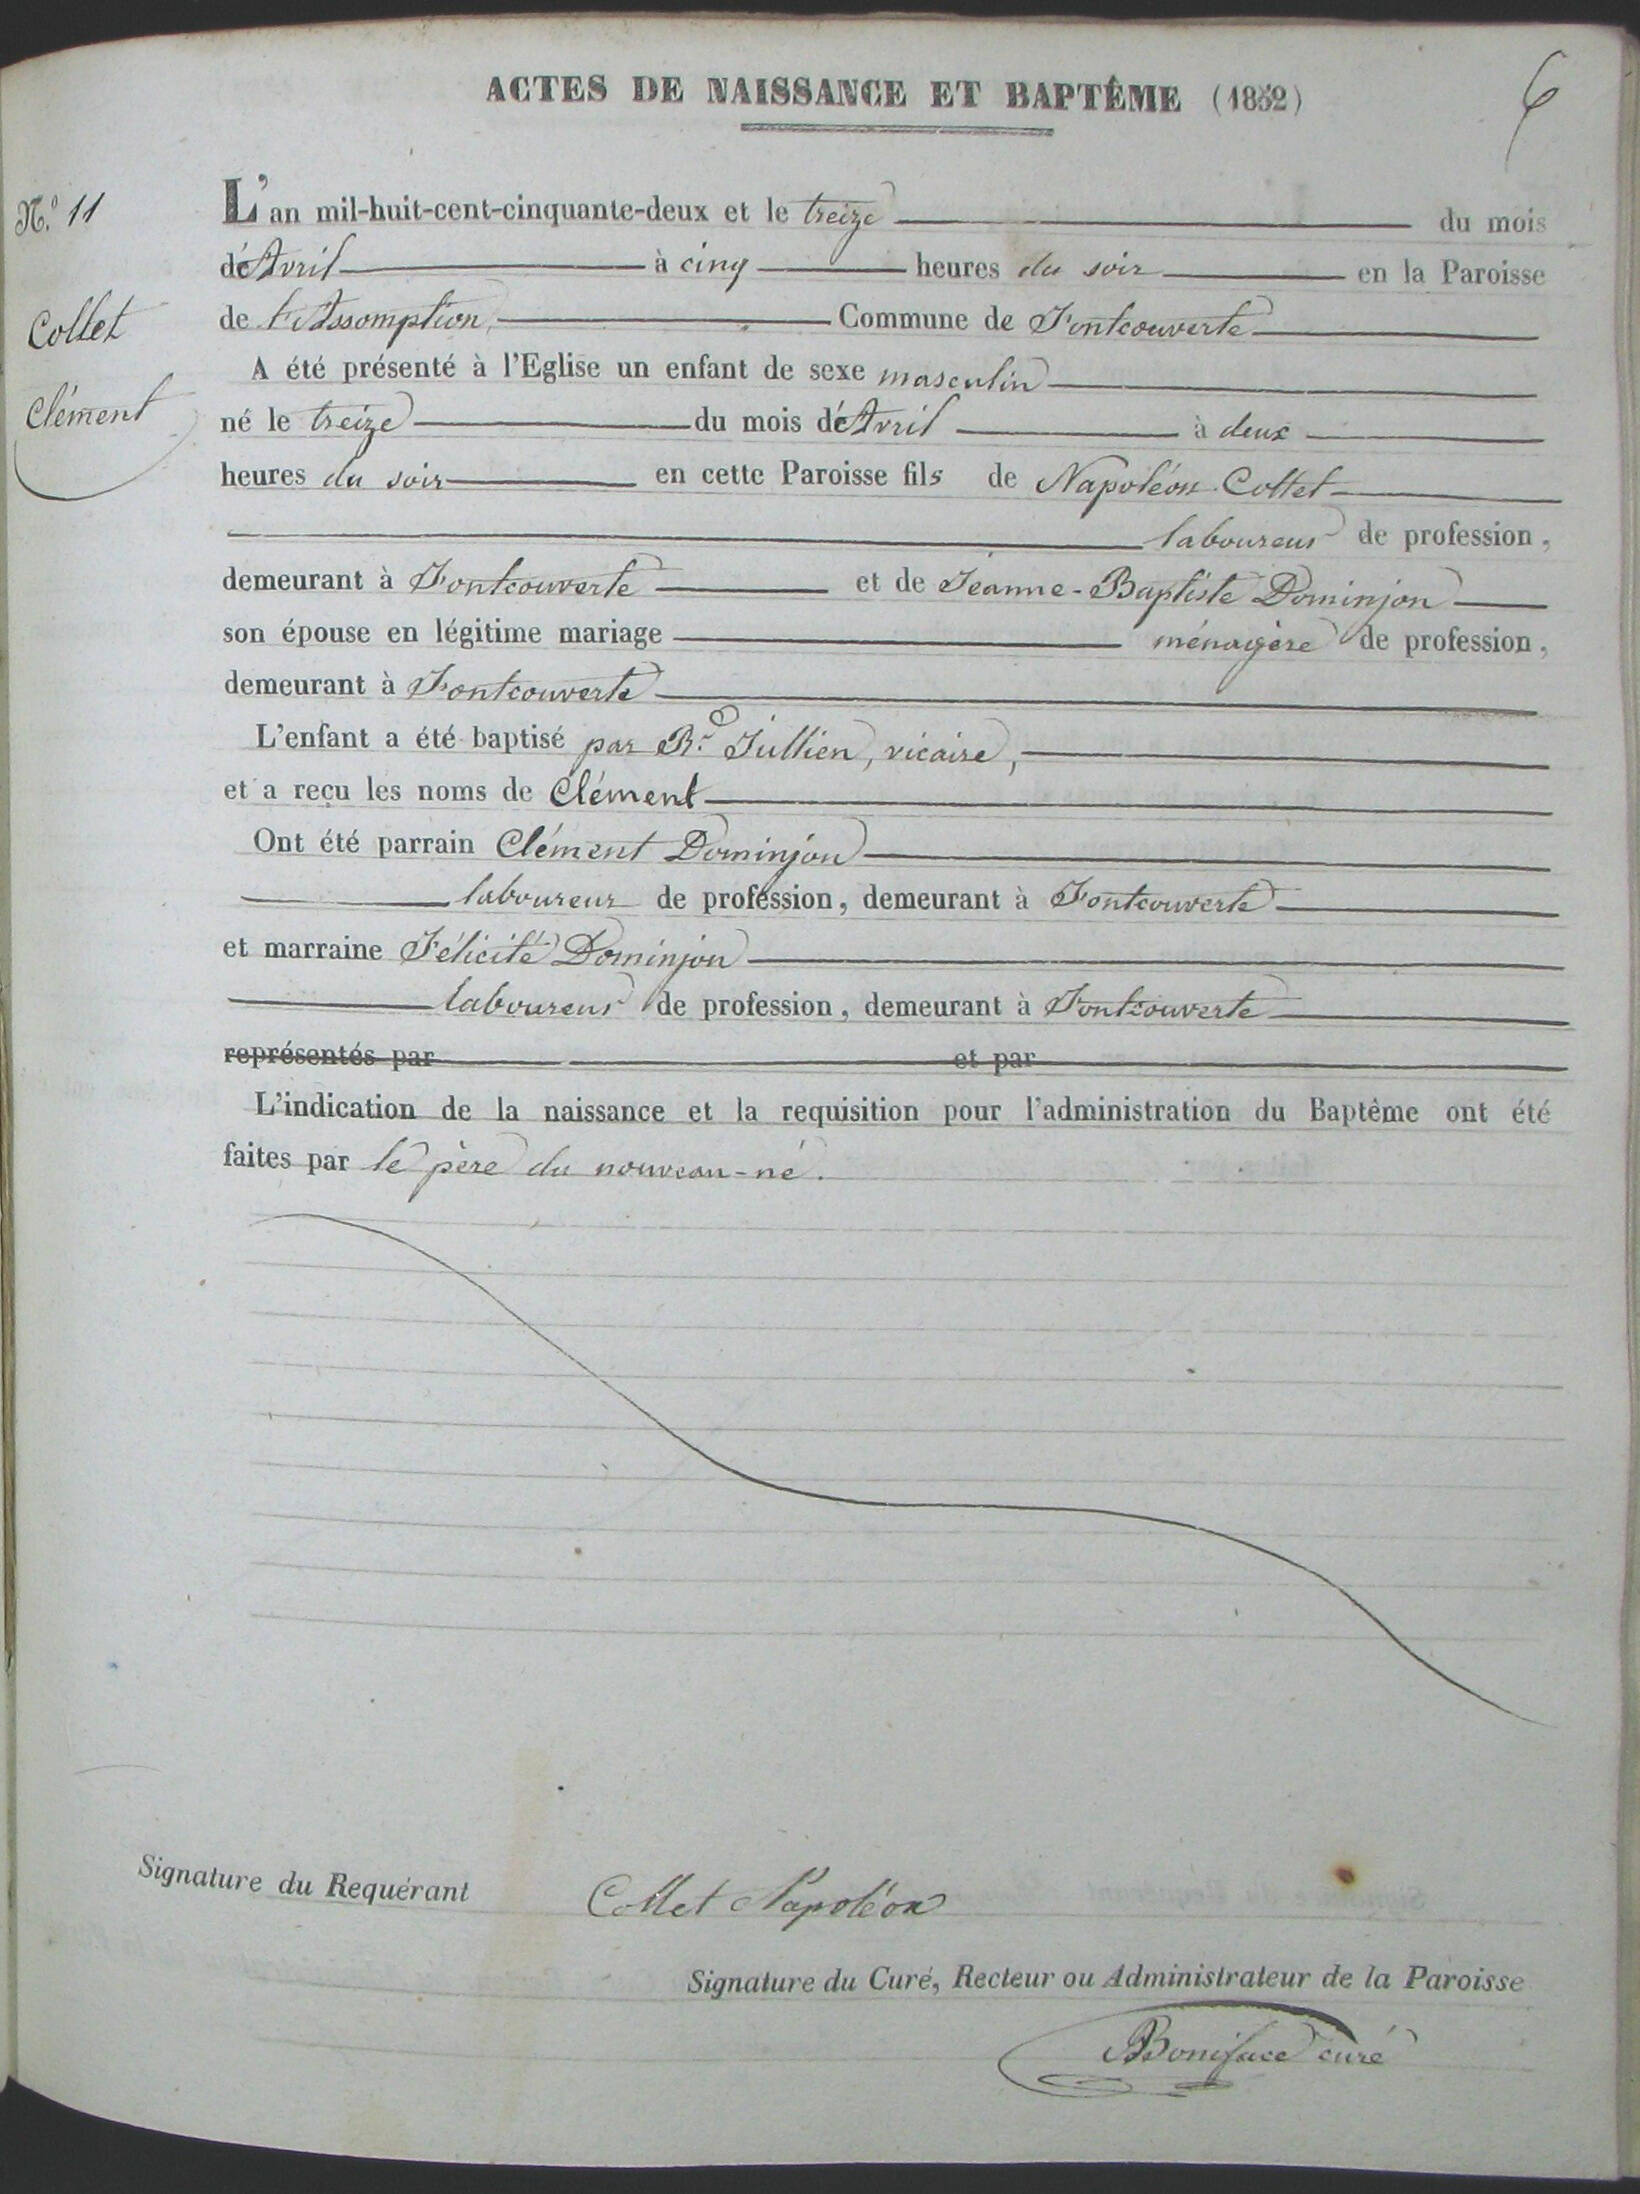 ACTES DE NAISSANCE ET BAPTÊME (1852)
6
N.° 11
Collet
Clément
L'an mil-huit-cent-cinquante-deux et le treize du mois
d'Avril à cinq heures du soir en la Paroisse
de l'Assomption, Commune de Fontcouverte
A été présenté à l'Eglise un enfant de sexe masculin
né le treize du mois d'Avril à deux
heures du soir en cette Paroisse fils de Napoléon Collet
laboureur de profession,
demeurant à Fontcouverte et de Jeanne-Baptiste Dominjon
son épouse en légitime mariage ménagère de profession,
demeurant à Fontcouverte
L'enfant a été baptisé par Rd Jullien, vicaire,
et a reçu les noms de Clément
Ont été parrain Clément Dominjon
laboureur de profession, demeurant à Fontcouverte
et marraine Félicité Dominjon
laboureur de profession, demeurant à Fontcouverte
représentés par et par
L'indication de la naissance et la requisition pour l'administration du Baptême ont été
faites par le père du nouveau-né.
Signature du Requérant Collet Napoléon
Signature du Curé, Recteur ou Administrateur de la Paroisse
Boniface curé